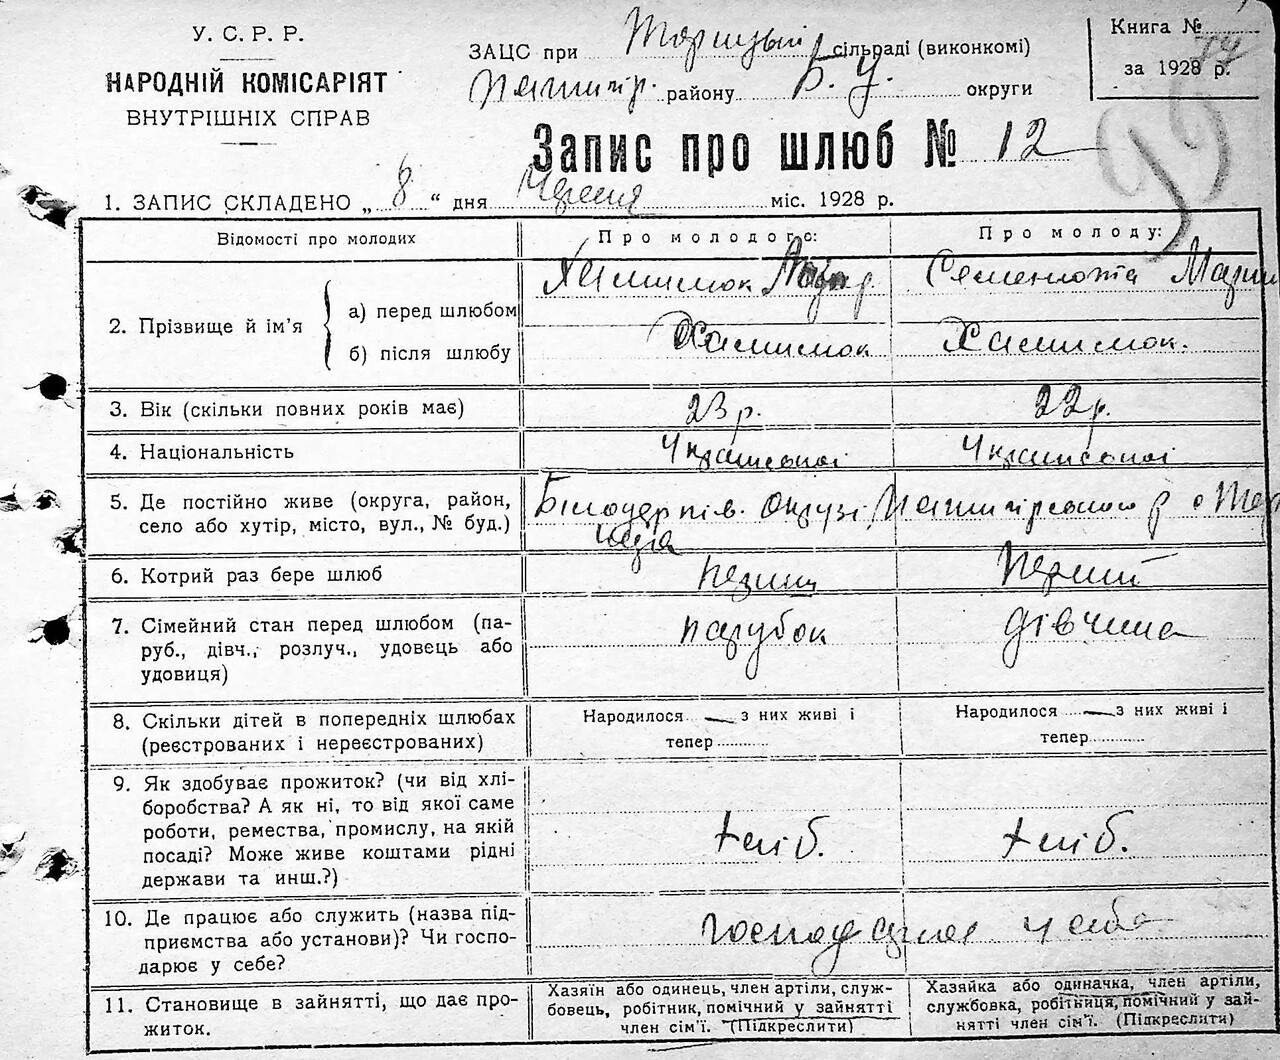 У. С. Р. Р.
НАРОДНІЙ КОМІСАРІЯТ
ВНУТРІШНІХ СПРАВ
ЗАЦС при сільраді (виконкомі)
району Б. Ц. округи
Книга №
за 1928 р.
Запис про шлюб № 12
1. ЗАПИС СКЛАДЕНО „ 8 “ дня Червня міс. 1928 р.
Відомості про молодих
Про молодого:
Про молоду:
2. Прізвище й ім'я
а) перед шлюбом
б) після шлюбу
3. Вік (скільки повних років має)
23 р.
22 р.
4. Національність
Української
Української
5. Де постійно живе (округа, район,
село або хутір, місто, вул., № буд.)
Білоцерків. Округи
6. Котрий раз бере шлюб
Перший
Перший
7. Сімейний стан перед шлюбом (па-
руб., дівч., розлуч., удовець або
удовиця)
парубок
дівчина
8. Скільки дітей в попередніх шлюбах
(реєстрованих і нереєстрованих)
Народилося — з них живі і
тепер
Народилося — з них живі і
тепер
9. Як здобуває прожиток? (чи від хлі-
боробства? А як ні, то від якої саме
роботи, ремества, промислу, на якій
посаді? Може живе коштами рідні
держави та инш.?)
хліб.
хліб.
10. Де працює або служить (назва під-
приємства або установи)? Чи госпо-
дарює у себе?
у себе
11. Становище в зайнятті, що дає про-
житок.
Хазяїн або одинець, член артіли, служ-
бовець, робітник, помічний у зайнятті
член сім'ї. (Підкреслити)
Хазяйка або одиначка, член артіли,
службовка, робітниця, помічний у зай-
нятті член сім'ї. (Підкреслити)